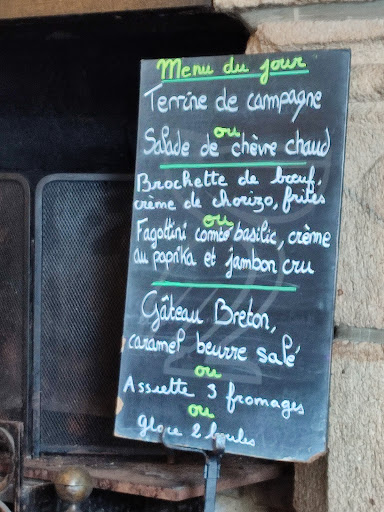 Menu du jour
Terrine de campagne
ou
Salade de chèvre chaud
Brochette de bœuf,
crème de chorizo, frites
ou
Fagottini comté basilic, crème
au paprika et jambon cru
Gâteau Breton,
caramel beurre salé
ou
Assiette 3 fromages
ou
glace 2 boules